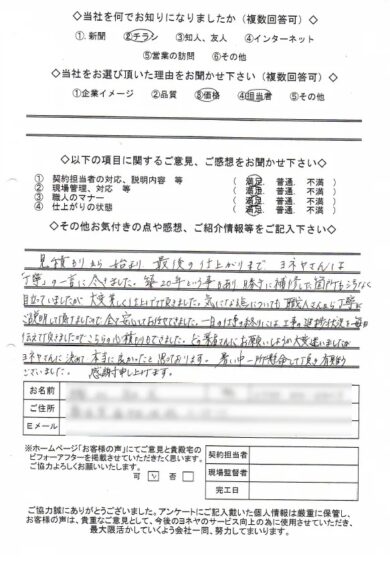 ◇当社を何でお知りになりましたか（複数回答可）◇
①.新聞 ②チラシ ③知人、友人 ④インターネット
⑤営業の訪問 ⑥その他
◇当社をお選び頂いた理由をお聞かせ下さい（複数回答可）◇
①企業イメージ ②品質 ③価格 ④担当者 ⑤その他
◇以下の項目に関するご意見、ご感想をお聞かせ下さい◇
① 契約担当者の対応、説明内容 等 （ 満足. 普通. 不満 ）
② 現場管理、対応 等 （ 満足. 普通. 不満 ）
③ 職人のマナー （ 満足. 普通. 不満 ）
④ 仕上がりの状態 （ 満足. 普通. 不満 ）
◇その他お気付きの点や感想、ご紹介情報等をご記入下さい◇
見積りから始まり 最後の仕上がりまで ヨネヤさんは
「丁寧」の一言に尽きました。築20年という事もあり
目立っていましたが大変美しく仕上げて頂きました。気になる点についても職人さんから丁寧に
ご説明して頂けましたので
ヨネヤさんに決めて本当に良かったと思っております。暑い中一所懸命して頂き有難う
ございました。 感謝申し上げます。
お名前
ご住所
Eメール
※ホームページ「お客様の声」にてご意見と貴殿宅の
ビフォーアフターを掲載させていただきたく思います。
ご協力よろしくお願いいたします。
可 ∨ 否
契約担当者
現場監督者
完工日
ご協力誠にありがとうございました。アンケートにご記入戴いた個人情報は厳重に保管し、
お客様の声は、貴重なご意見として、今後のヨネヤのサービス向上の為に使用させていただき、
最大限活かしていくよう会社一同、努力してまいります。